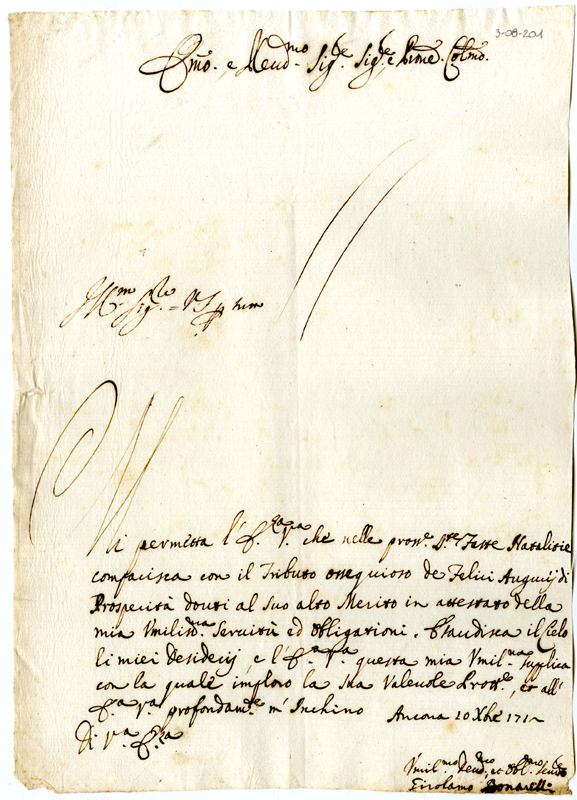 3-08-201
Emo. e Reud.mo Sig.re Sig.re e Prne. Colmo.
Ill.mo Sig.re
Mi permetta l'E.za V.ra che nelle pross.e S.te Feste Natalitie
comparisca con il Tributo ossequioso de Felici Augurij di
Prosperità douti al Suo alto Merito in attestato della
mia Vmiliss.ma Seruitù ed obligationi. Esaudisca il Cielo
li miei Desiderij, e l'E.za V.ra questa mia Vmil.ma Supplica
con la quale imploro la Sua Valeuole Prott.e, et all'
E.za V.ra profondam.te m'Inchino Ancona 20 Xbre 171
Di V.ra E.za
Vmil.mo Deu.mo et Obl.mo Seru.re
Girolamo Bonarelli